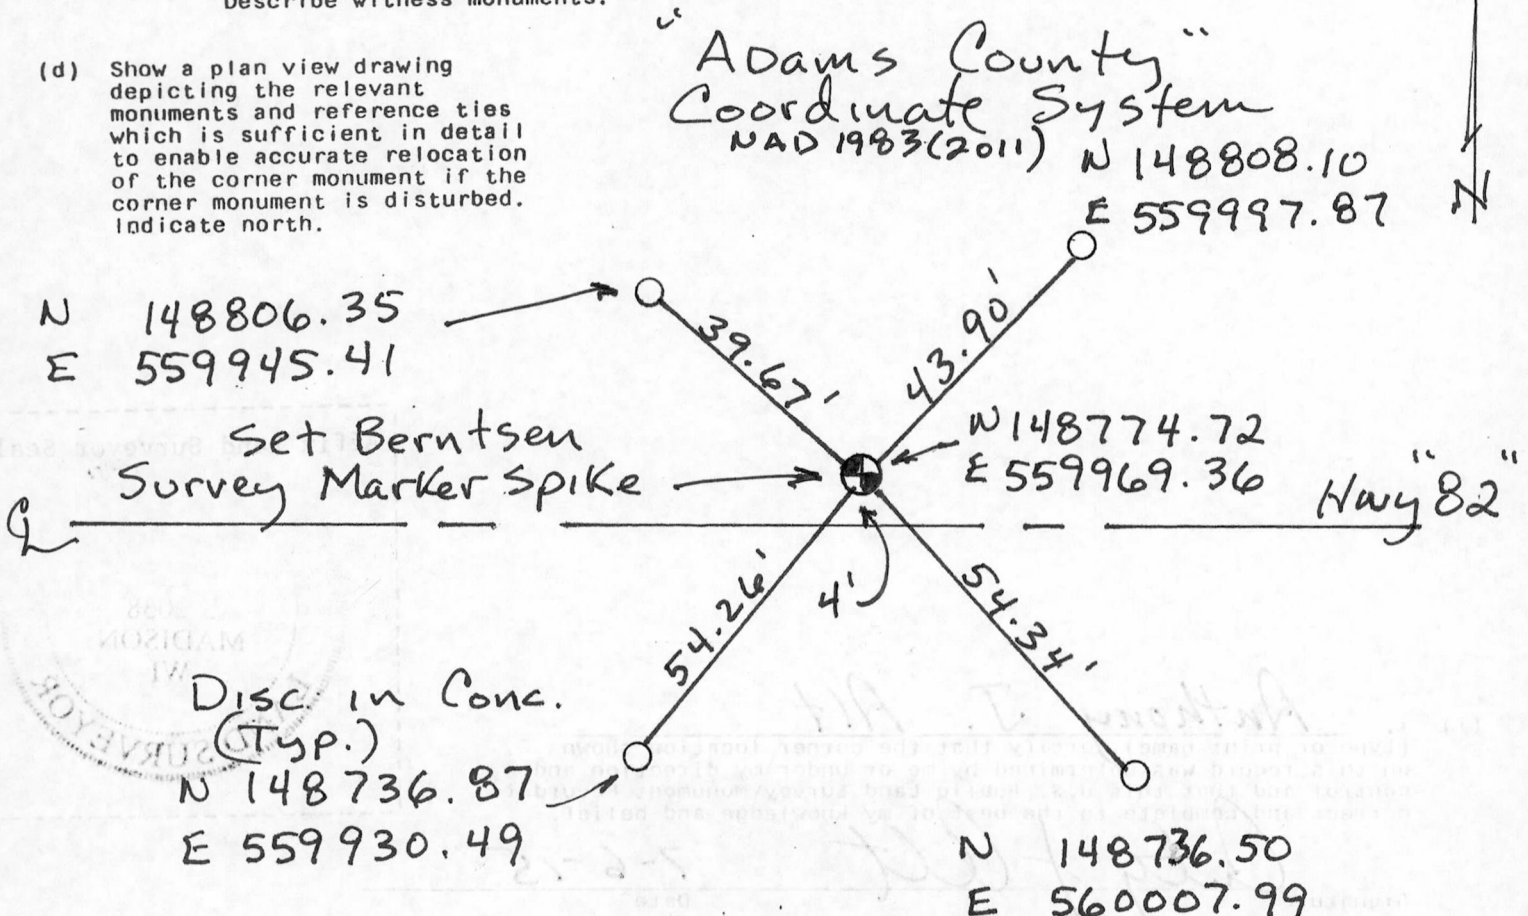 Describe witness monuments.
(d) Show a plan view drawing
depicting the relevant
monuments and reference ties
which is sufficient in detail
to enable accurate relocation
of the corner monument if the
corner monument is disturbed.
Indicate north.
"Adams County"
Coordinate System
NAD 1983(2011)
N 148808.10
E 559997.87
N
N 148806.35
E 559945.41
39.67'
43.90'
N 148774.72
E 559969.36
Set Berntsen
Survey Marker Spike
Hwy "82"
CL
4'
54.26'
54.34'
Disc. in Conc.
(Typ.)
N 148736.87
E 559930.49
N 148736.50
E 560007.99